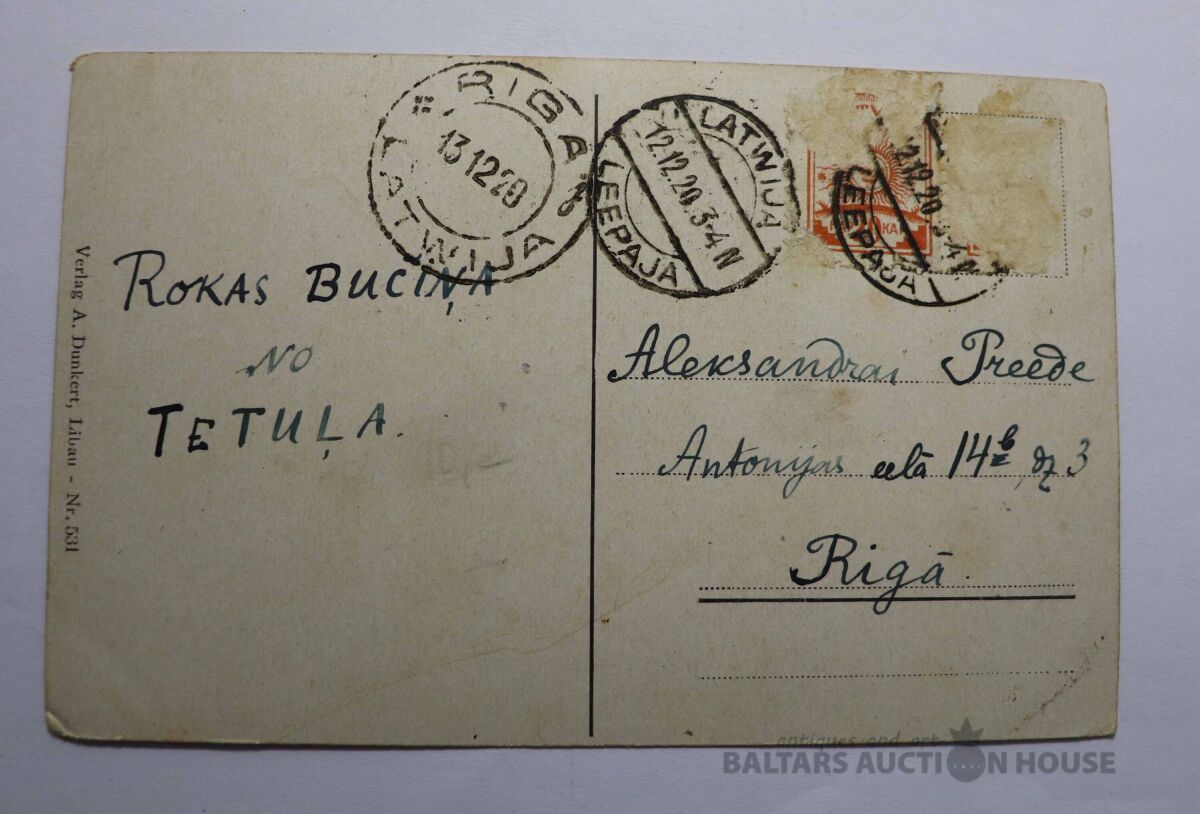 RIGA
13 12 20
LATWIJA
LATWIJA
12.12.20. 3-4 N
LEEPAJA
2.12.20 3-4 N
LEEPAJA
ROKAS BUCIŅA
NO
TETUĻA.
Aleksandrai Preede
Antonijas eelā 14 dz 3
Rigā.
Verlag A. Dunkert, Libau - Nr. 531
antiques and art
BALTARS AUCTION HOUSE